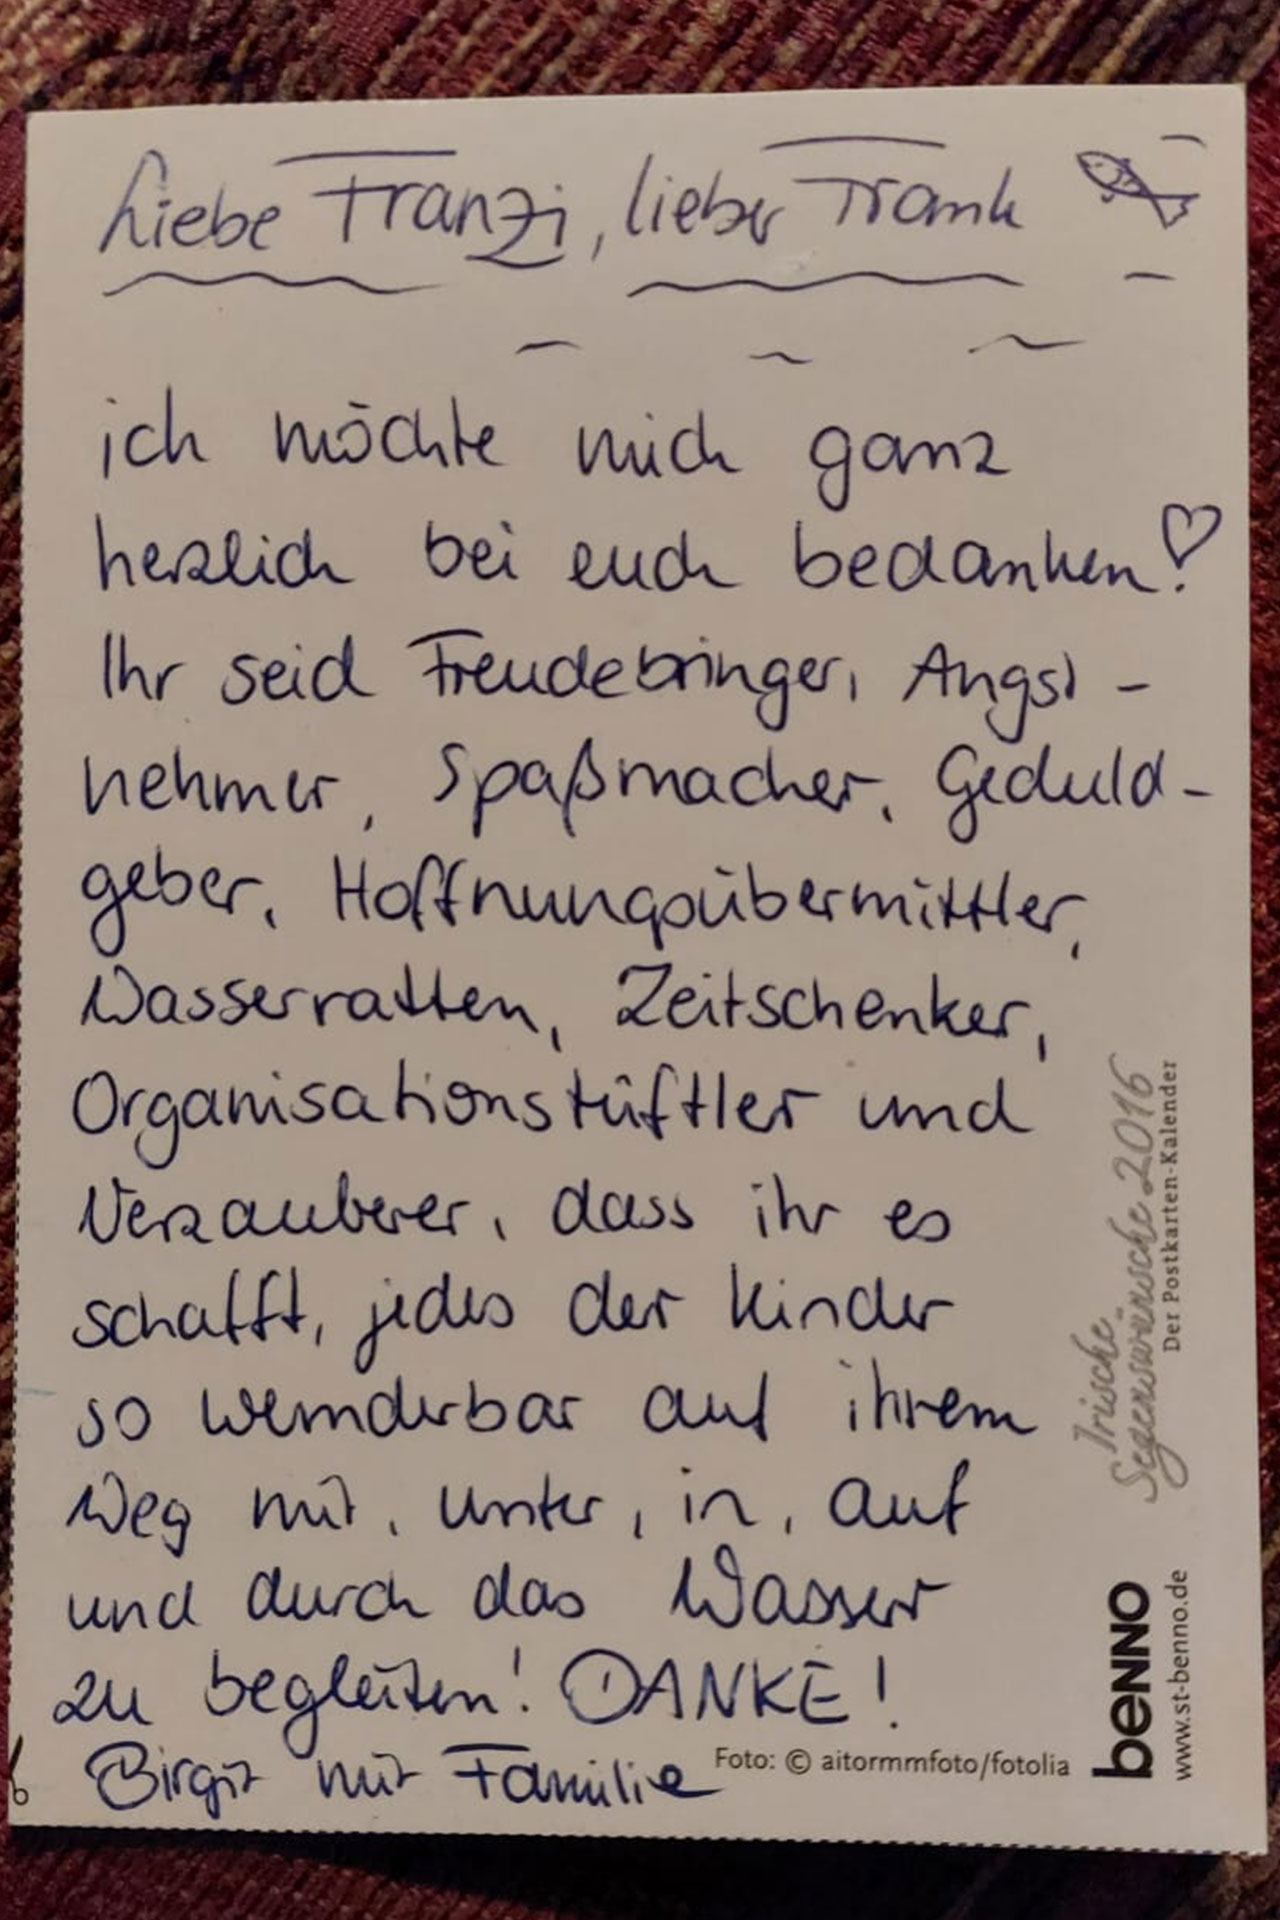 Liebe Franzi, lieber Frank
ich möchte mich ganz
herzlich bei euch bedanken!
Ihr seid Freudebringer, Angst-
nehmer, Spaßmacher, Geduld-
geber, Hoffnungsübermittler,
Wasserratten, Zeitschenker,
Organisationstüftler und
Verzauberer, dass ihr es
schafft, jedes der Kinder
so wunderbar auf ihrem
Weg mit, unter, in, auf
und durch das Wasser
zu begleiten! DANKE!
Birgit mit Familie
Foto: © aitormmfoto/fotolia
Irische
Segenswünsche 2016
Der Postkarten-Kalender
benno
www.st-benno.de